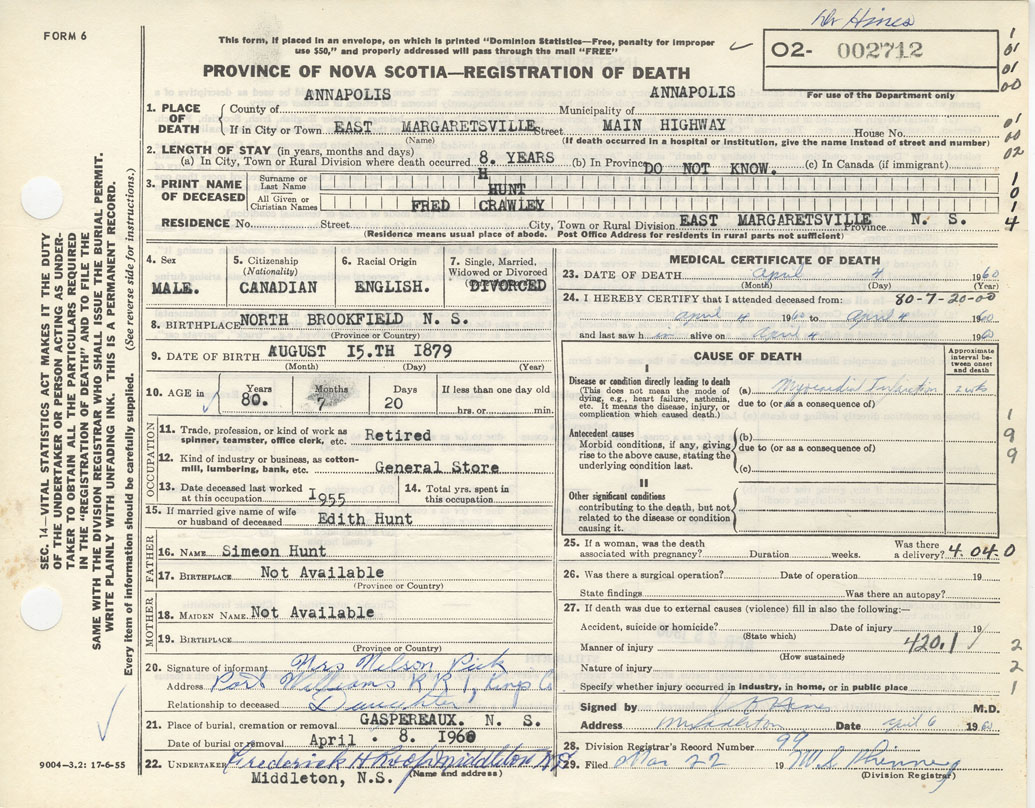 Dr Hines
FORM 6
This form, if placed in an envelope, on which is printed "Dominion Statistics—Free, penalty for improper
use $50," and properly addressed will pass through the mail "FREE"
O2- 002712
For use of the Department only
PROVINCE OF NOVA SCOTIA—REGISTRATION OF DEATH
1. PLACE OF DEATH
County of ANNAPOLIS Municipality of ANNAPOLIS
If in City or Town EAST MARGARETSVILLE Street MAIN HIGHWAY House No.
(Name) (If death occurred in a hospital or institution, give the name instead of street and number)
2. LENGTH OF STAY (in years, months and days)
(a) In City, Town or Rural Division where death occurred 8. YEARS (b) In Province DO NOT KNOW. (c) In Canada (if immigrant)
3. PRINT NAME OF DECEASED
Surname or Last Name H HUNT
All Given or Christian Names FRED CRAWLEY
RESIDENCE No. Street City, Town or Rural Division EAST MARGARETSVILLE Province N. S.
(Residence means usual place of abode. Post Office Address for residents in rural parts not sufficient)
4. Sex MALE.
5. Citizenship (Nationality) CANADIAN
6. Racial Origin ENGLISH.
7. Single, Married, Widowed or Divorced DIVORCED
8. BIRTHPLACE NORTH BROOKFIELD N. S.
(Province or Country)
9. DATE OF BIRTH AUGUST I5.TH I879
(Month) (Day) (Year)
10. AGE in Years 80. Months 7 Days 20 If less than one day old hrs. or min.
OCCUPATION
11. Trade, profession, or kind of work as spinner, teamster, office clerk, etc. Retired
12. Kind of industry or business, as cotton-mill, lumbering, bank, etc. General Store
13. Date deceased last worked at this occupation I955
14. Total yrs. spent in this occupation
15. If married give name of wife or husband of deceased Edith Hunt
FATHER
16. NAME Simeon Hunt
17. BIRTHPLACE Not Available
(Province or Country)
MOTHER
18. MAIDEN NAME Not Available
19. BIRTHPLACE
(Province or Country)
20. Signature of informant Mrs Nelson Pick
Address Port Williams R R 1, Kings Co
Relationship to deceased Daughter
21. Place of burial, cremation or removal GASPEREAUX. N. S.
Date of burial or removal April . 8. I960
22. UNDERTAKER Frederick H Roop Middleton N.S.
Middleton, N.S. (Name and address)
MEDICAL CERTIFICATE OF DEATH
23. DATE OF DEATH April 4 1960
(Month) (Day) (Year)
24. I HEREBY CERTIFY that I attended deceased from: 80-7-20-00
April 4 1960 to April 4 1960
and last saw h im alive on April 4 1960
CAUSE OF DEATH
Approximate interval between onset and death
I
Disease or condition directly leading to death
(This does not mean the mode of dying, e.g., heart failure, asthenia, etc. It means the disease, injury, or complication which caused death.)
(a) Myocardial Infarction 2 wks
due to (or as a consequence of)
Antecedent causes
Morbid conditions, if any, giving rise to the above cause, stating the underlying condition last.
(b)
due to (or as a consequence of)
(c)
II
Other significant conditions
contributing to the death, but not related to the disease or condition causing it.
25. If a woman, was the death associated with pregnancy? Duration weeks. Was there a delivery? 4.04.0
26. Was there a surgical operation? Date of operation 19
State findings Was there an autopsy?
27. If death was due to external causes (violence) fill in also the following:—
Accident, suicide or homicide? Date of injury 19
(State which)
Manner of injury 420.1
(How sustained)
Nature of injury
Specify whether injury occurred in industry, in home, or in public place
Signed by Hines M.D.
Address Middleton Date April 6 1960
28. Division Registrar's Record Number 94
29. Filed Mar 22 19
(Division Registrar)
1
01
01
00
01
00
02
1
0
1
4
1
9
9
2
2
1
SEC. 14—VITAL STATISTICS ACT MAKES IT THE DUTY
OF THE UNDERTAKER OR PERSON ACTING AS UNDER-
TAKER TO OBTAIN ALL THE PARTICULARS REQUIRED
IN THE "REGISTRATION OF DEATH" AND TO FILE THE
SAME WITH THE DIVISION REGISTRAR WHO SHALL ISSUE THE BURIAL PERMIT.
WRITE PLAINLY WITH UNFADING INK. THIS IS A PERMANENT RECORD.
Every item of information should be carefully supplied. (See reverse side for instructions.)
9004—3.2: 17-6-55